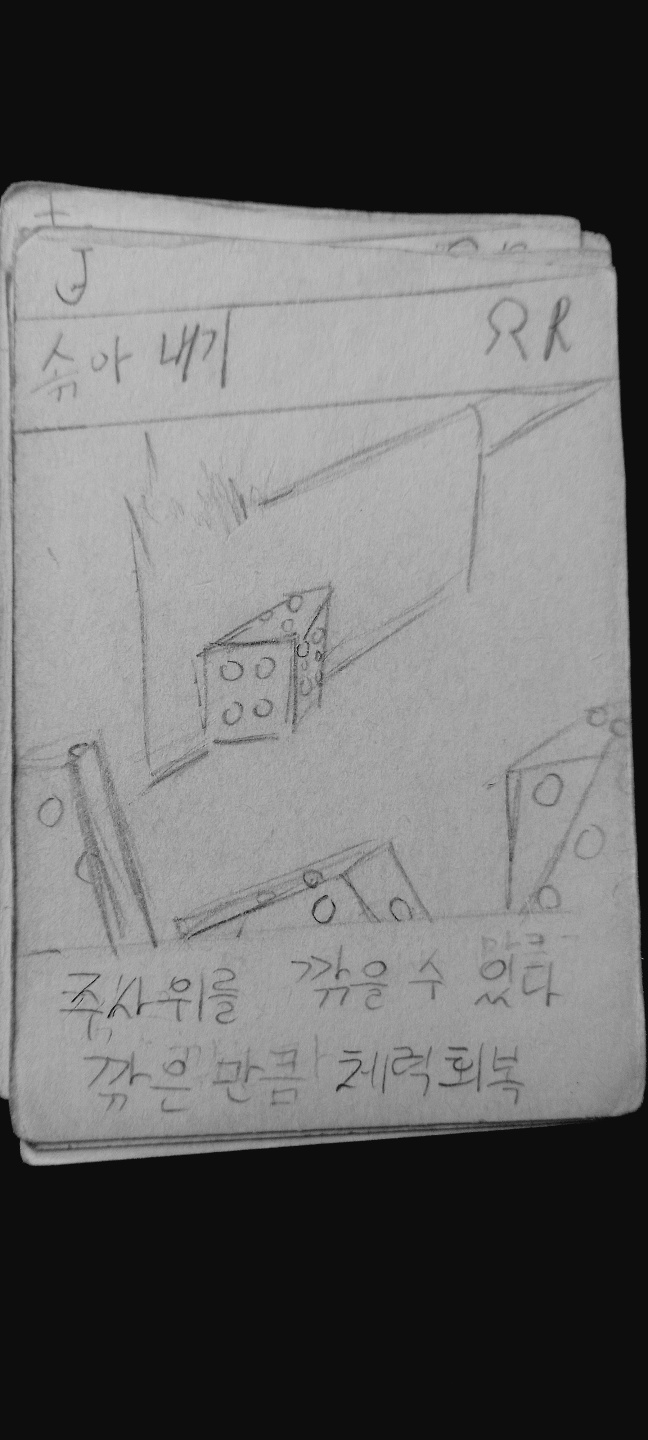 J
솎아 내기 R
주사위를 깎을 수 있다
깎은 만큼 체력회복